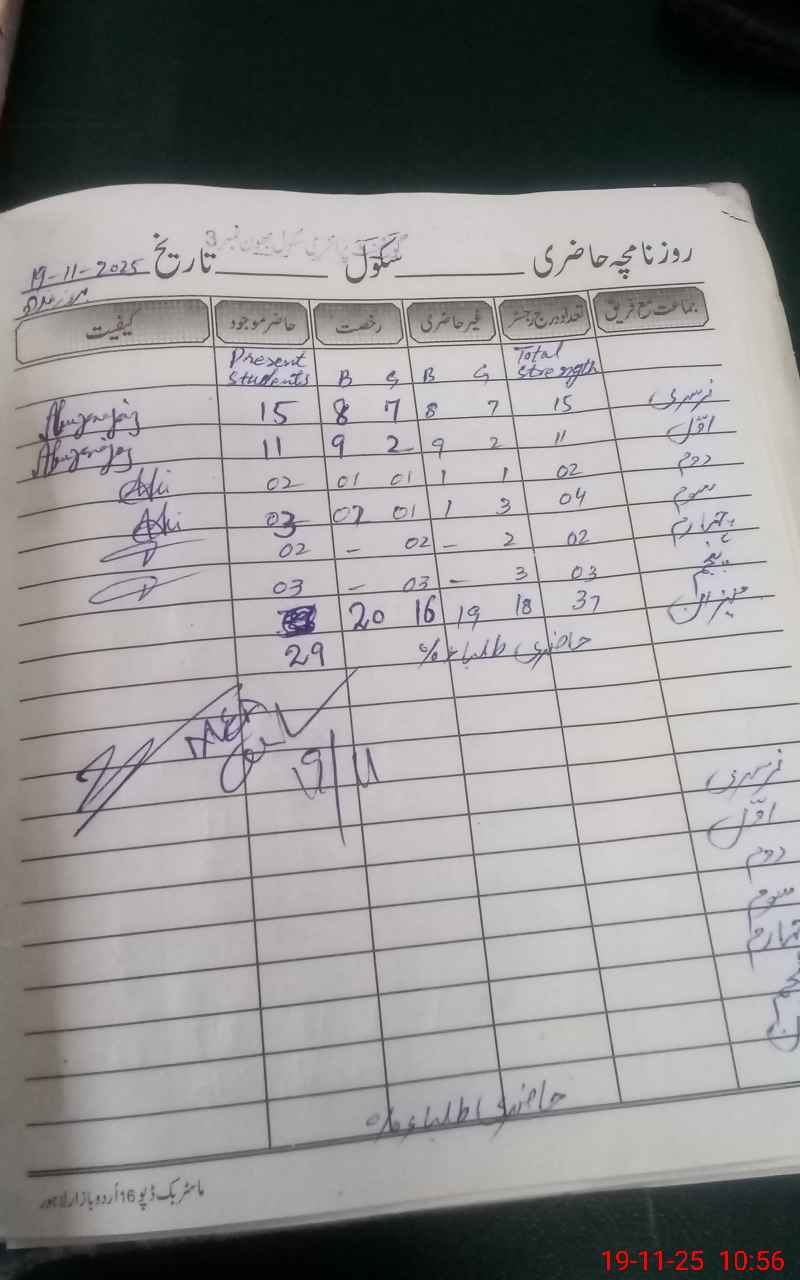 روزنامچہ حاضری ــــــــ سکول ــــــــ تاریخ 19-11-2025
جماعت مع فریق تعداد درج رجسٹر غیر حاضری رخصت حاضر موجود کیفیت
Present Students B G B G Total Strength
نرسری 15 7 8 7 8 15
اوّل 11 2 9 2 9 11
دوم 02 1 1 01 01 02
سوم 04 3 1 01 02 03
چہارم 02 2 - 02 - 02
پنجم 03 3 - 03 - 03
میزان 37 18 19 16 20
حاضری طلباء % 29
19/11
نرسری
اوّل
دوم
سوم
چہارم
حاضری طلباء %
ماسٹر بک ڈپو 16 اردو بازار لاہور
19-11-25 10:56